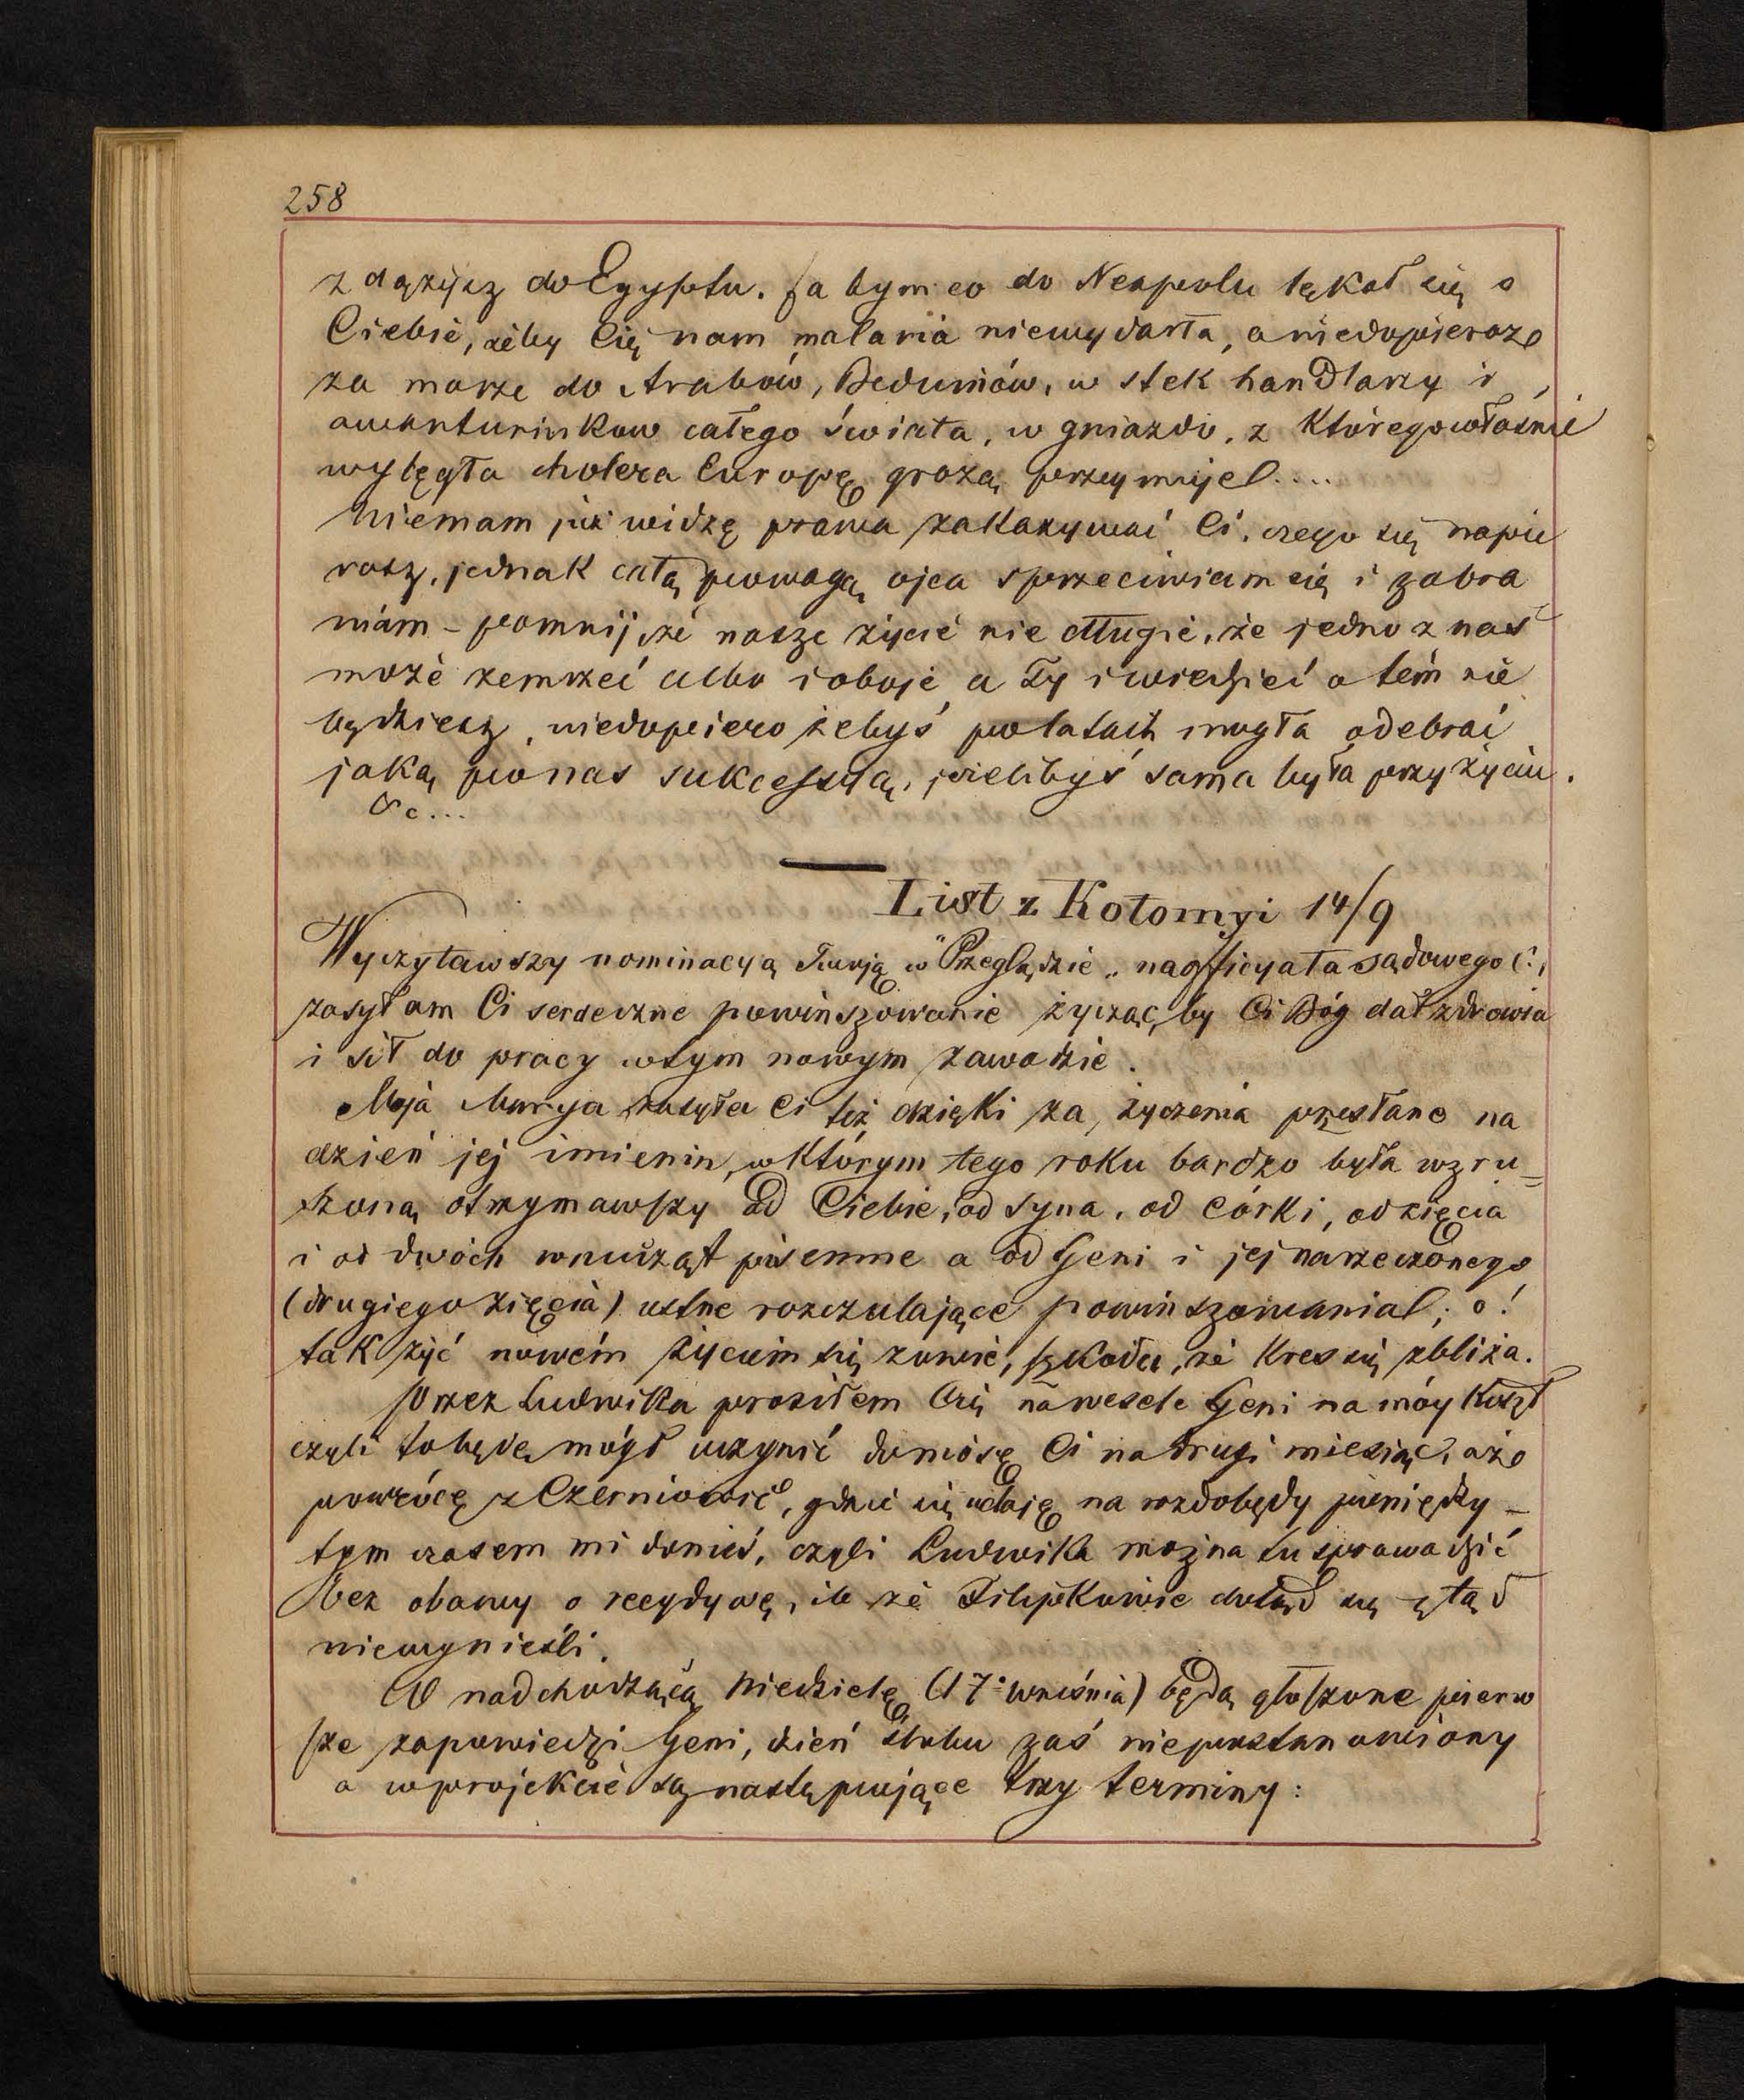 258
zdążysz do Egyptu. Ja bym co do Neapolu lękał się o
Ciebie, żeby Cię nam malaria niewydarła, a niedopieroże
za morze do Arabów, Beduinów, w stek handlarzy i
awanturników całego świata, w gniazdo, z którego właśnie
wylęgła cholera Europę grozą przeymuje!....
Niemam już widzę prawa zakazywać Ci, czego się napie
rasz, jednak całą powagą ojca sprzeciwiam się i zabra
niám – pomnij, że nasze życie nie długie, że jedno z nas
może zemrzeć albo i oboje a Ty i wiedzieć o tém nie
będziesz, niedopiero żebyś po latach mogła odebrać
jaką po nas sukcessyą, jeżelibyś sama była przy życiu.
&c...
List z Kołomyi 14/9
Wyczytawszy nominacyą Twoją w "Przeglądzie„ na officyała sądowego C.,
zasyłam Ci serdeczne powinszowanie życząc, by Ci Bóg dał zdrowia
i sił do pracy w tym nowym zawodzie.
Moja Marya zasyła Ci też dzięki za życzenia przesłane na
dzień jej imienin, w którym tego roku bardzo była wzru=
szoną otrzymawszy od Ciebie, od syna, od córki, od zięcia
i od dwóch wnucząt pisemne a od Geni i jej narzeczonego
(drugiego zięcia) ustne rozczulające powinszowania!; o!
tak żyć nowém życiem się zowie, szkoda, że kres się zbliża.
Przez Ludwika prosiłem Cię na wesele Geni na móy koszt
czyli to będę mógł uczynić doniosę Ci na drugi miesiąc, aże
powrócę z Czerniowiec, gdzie się udaję na rozdobędy pieniędzy –
tym czasem mi donieś, czyli Ludwika można tu sprowadzić
bez obawy o recydywę, ile że Filipkowie dotąd się ztąd
niewynieśli.
W nadchodzącą Niedzielę (17º września) będą głoszone pierw
sze zapowiedzi Geni, dzień ślubu zaś niepostanowiony
a w projekcie są następujące trzy terminy: